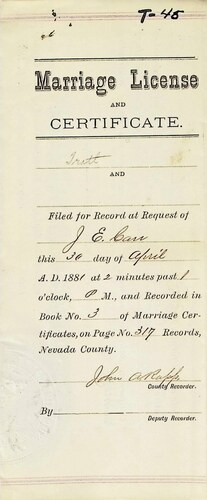 T-45
Marriage License
AND
CERTIFICATE.
Trott
AND
Filed for Record at Request of
J. E. Carr
this 30 day of April
A. D. 1881 at 2 minutes past 1
o'clock, P M., and Recorded in
Book No. 3 of Marriage Cer-
tificates, on Page No. 317 Records,
Nevada County.
John A Rapp
County Recorder.
By
Deputy Recorder.